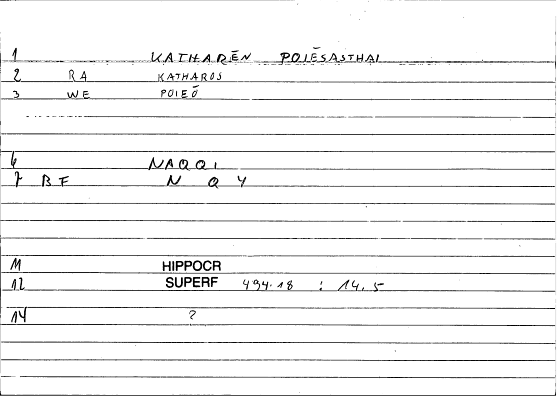 1 KATHARĒN POIĒSASTHAI
2 RA KATHAROS
3 WE POIEŌ
6 NAQQI
7 BF N Q Y
M HIPPOCR
12 SUPERF 494.18 : 14.5
14 ?